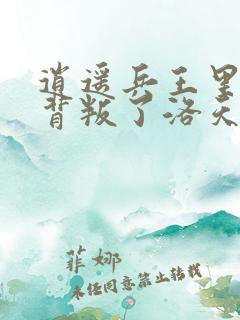 逍遥兵王里
背叛了洛天
菲娜
未经同意禁止转载